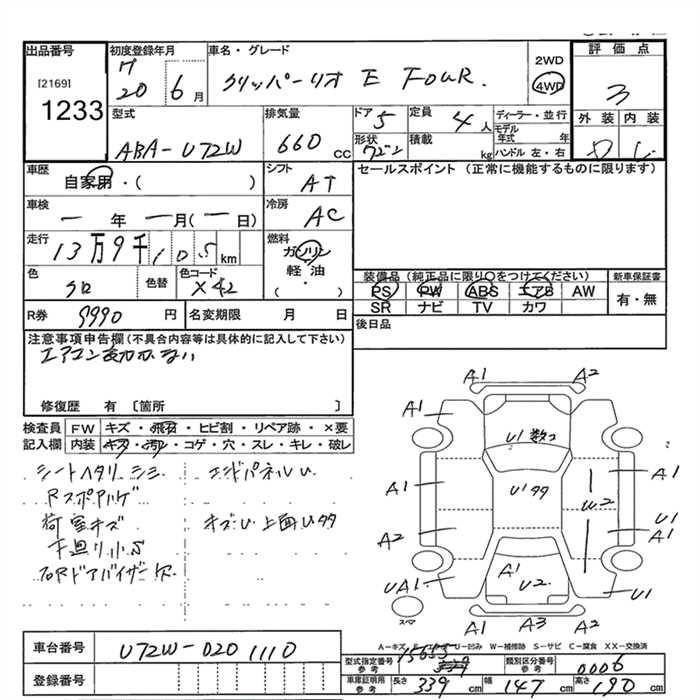 出品番号
[2169]
1233
初度登録年月
20 6 月
車名・グレード
クリッパーリオ E FOUR.
2WD
4WD
評価点
3
外装 内装
型式
ABA-U72W
排気量
660 CC
ドア 5
定員 4 人
形状 ワゴン
積載 kg
ディーラー・並行
モデル年式 年
ハンドル 左・右
車歴
自家用・( )
シフト
AT
セールスポイント (正常に機能するものに限ります)
車検
ー 年 ー 月(ー 日)
冷房
AC
走行
13万9千105 km
燃料
ガソリン
軽油・
( )
色
シロ
色替
色コード
X42
装備品(純正品に限り○をつけてください)
新車保証書
PS PW ABS エアB AW
SR ナビ TV カワ
有・無
R券 9990 円
名変期限 月 日
後日品
注意事項申告欄(不具合内容等は具体的に記入して下さい)
エアコン効かない
修復歴 有〔箇所 〕
検査員記入欄
FW キズ・飛石・ヒビ割・リペア跡・×要
内装 キズ・汚れ・コゲ・穴・スレ・キレ・破レ
シートヘタリ シミ
エンドパネルU
Rスポアハゲ
荷室キズ
キズU 上面Uタタ
下廻り小S
フロRドアバイザー欠
A1 A2
A1
U1数コ
A1
U1タタ
A1
W2
U1
A1
A2
UA1
A1
U2
U1
スペア
A1 A3 A2
A-キズ U-凹み W-補修跡 S-サビ C-腐食 XX-交換済
車台番号
U72W-0201110
登録番号
型式指定番号
参考
15655
類別区分番号
参考
0006
車庫証明用
参考
長さ 339 cm
幅 147 cm
高さ 190 cm